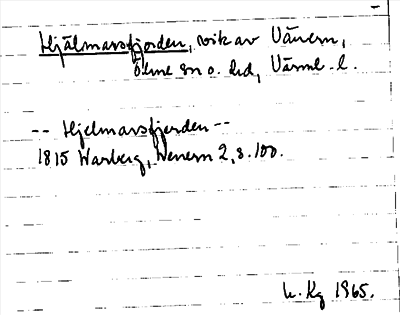 Hjälmarsfjorden, vik av Vänern,
Ölme sn o. hd, Värml. l.
-- Hjelmarsfjerden --
1815 Warberg, Wenern 2, s. 100.
h. Kg 1965.